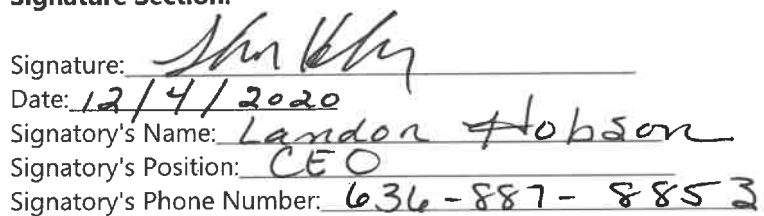 Signature Section:
Signature:
Date: 12/4/2020
Signatory's Name: Landon Hobson
Signatory's Position: CEO
Signatory's Phone Number: 636-887-8853